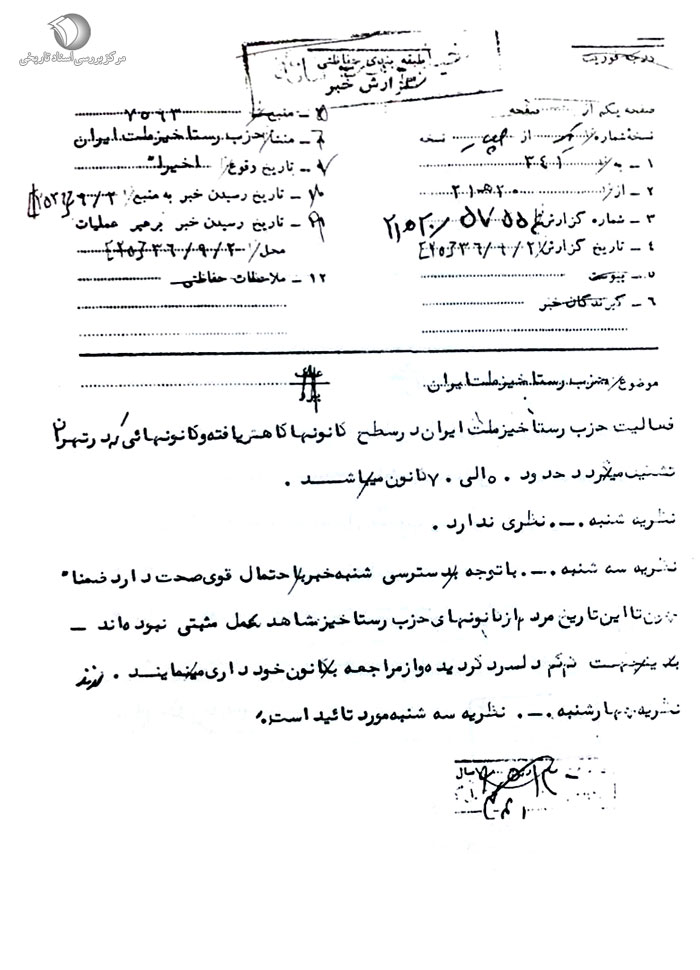 مرکز بررسی اسناد تاریخی
درجه فوریت
طبقه بندی حفاظتی
گزارش خبر
صفحه یکم از صفحه
نسخه شماره از نسخه
۱ ـ به ۳۴۱
۲ ـ از
۳ ـ شماره گزارش
۴ ـ تاریخ گزارش
۵ ـ پیوست
۶ ـ گیرندگان خبر
۷ ـ منبع خبر ۷۵۶۳
۸ ـ منشاء حزب رستاخیز ملت ایران
۹ ـ تاریخ وقوع اخیرا"
۱۰ ـ تاریخ رسیدن خبر به منبع
۱۱ ـ تاریخ رسیدن خبر برهبر عملیات
محل ۳۶/۹/۲ [۲۵]
۱۲ ـ ملاحظات حفاظتی
موضوع حزب رستاخیز ملت ایران
فعالیت حزب رستاخیز ملت ایران در سطح کانونها کاهش یافته و کانونهائی که در تهران
تشکیل میگردد حدود ۵۰ الی ۷۰ کانون میباشد .
نظریه شنبه .ـ. نظری ندارد .
نظریه سه شنبه .ـ. با توجه بدسترسی شنبه خبر با احتمال قوی صحت دارد ضمنا"
چون تا این تاریخ مردم از کانونهای حزب رستاخیز شاهد عمل مثبتی نبوده اند ـ
بدینجهت دلسرد گردیده و از مراجعه بکانون خودداری مینمایند .
نظریه چهارشنبه .ـ. نظریه سه شنبه مورد تائید است .